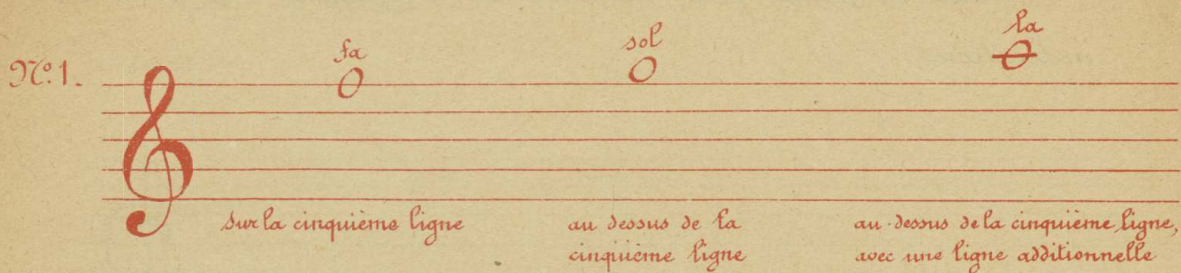 fa
sol
la
Nº 1.
sur la cinquième ligne
au dessus de la
cinquième ligne
au-dessus de la cinquième ligne,
avec une ligne additionnelle